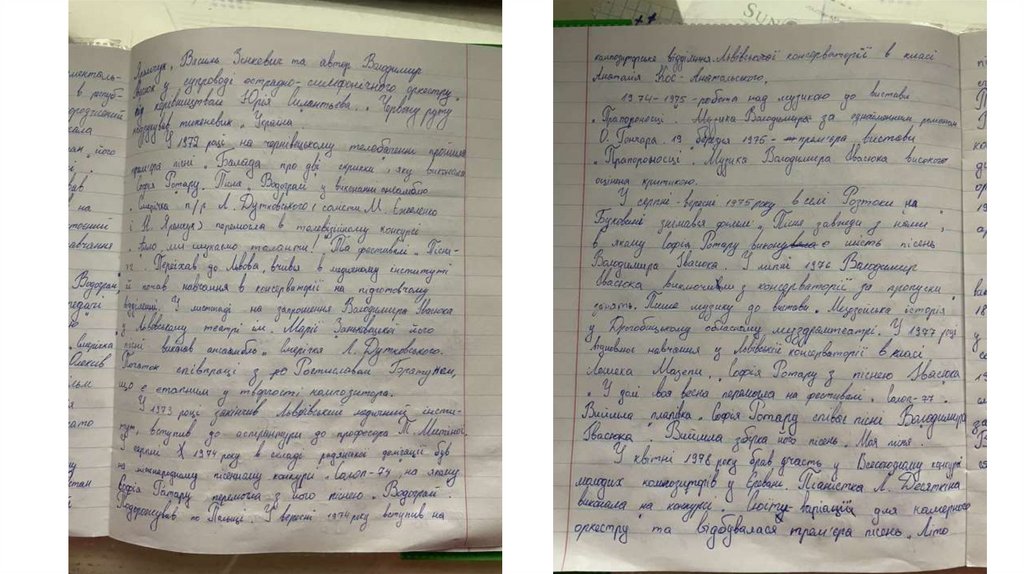 Яремчук, Василь Зінкевич та автор Володимир
Івасюк у супроводі естрадно-симфонічного оркестру
під керівництвом Юрія Силантьєва. "Червону руту"
тижневик "Україна".
У 1972 році на чернівецькому телебаченні пройшла
прем'єра пісні "Балада про дві скрипки", яку виконала
Софія Ротару. Пісня "Водограй" у виконанні ансамблю
"Смерічка" п/р Л. Дутковського (солісти М.
і Н. Яремчук) перемогла в телевізійному конкурсі
"Алло, ми шукаємо таланти!" Та фестивалі "Пісня-
72". Переїхав до Львова, вчився в медичному інституті
й почав навчання в консерваторії на підготовчому
відділенні. У листопаді на запрошення Володимира Івасюка
у Львівському театрі ім. Марії Заньковецької його
пісні виконав ансамбль "Смерічка" Л. Дутковського.
Початок співпраці з Ростиславом Братунем,
що є етапним у творчості композитора.
У 1973 році закінчив Львівський медичний інсти-
тут, вступив до аспірантури до професора Т. Митіної.
У серпні 1974 року в складі радянської делегації був
на міжнародному пісенному конкурсі "Сопот-74", на якому
Софія Ротару перемогла з його піснею "Водограй".
Подорожував по Польщі. У вересні 1974 року вступив на
менталь-
в респуб-
його
на
навчання
"Водограй,
"Смерічка
композиторське відділення Львівської консерваторії в класі
Анатолія Кос-Анатольського.
1974-1975 - робота над музикою до вистави
"Прапороносці". Музика Володимира за однойменним романом
О. Гончара. 19 березня 1975 - прем'єра вистави
"Прапороносці". Музика Володимира Івасюка високо
оцінена критикою.
У серпні-вересні 1975 року в селі Розтоки на
Буковині знімався фільм: "Пісня завжди з нами",
в якому Софія Ротару виконувала шість пісень
Володимира Івасюка. У липні 1976 Володимир
Івасюка виключили з консерваторії за пропуски
занять. Пише музику до вистави "Мезозойська історія"
у Дрогобицькому обласному муздрамтеатрі. У 1977 році
поновлює навчання у Львівської консерваторії в класі
Лешека Мазепи. Софія Ротару з піснею Івасюка
"У долі своя весна" перемогла на фестивалі "Сопот-77".
Вийшла платівка "Софія Ротару співає пісні Володимира
Івасюка". Вийшла збірка його пісень "Моя пісня".
У квітні 1978 року брав участь у Всесоюзному конкурсі
молодих композиторів у Єревані. Піаністка Л. Десяткіна
виконала на конкурсі "Сюїту-варіації для камерного
оркестру" та відбувалася прем'єра пісень "Літо